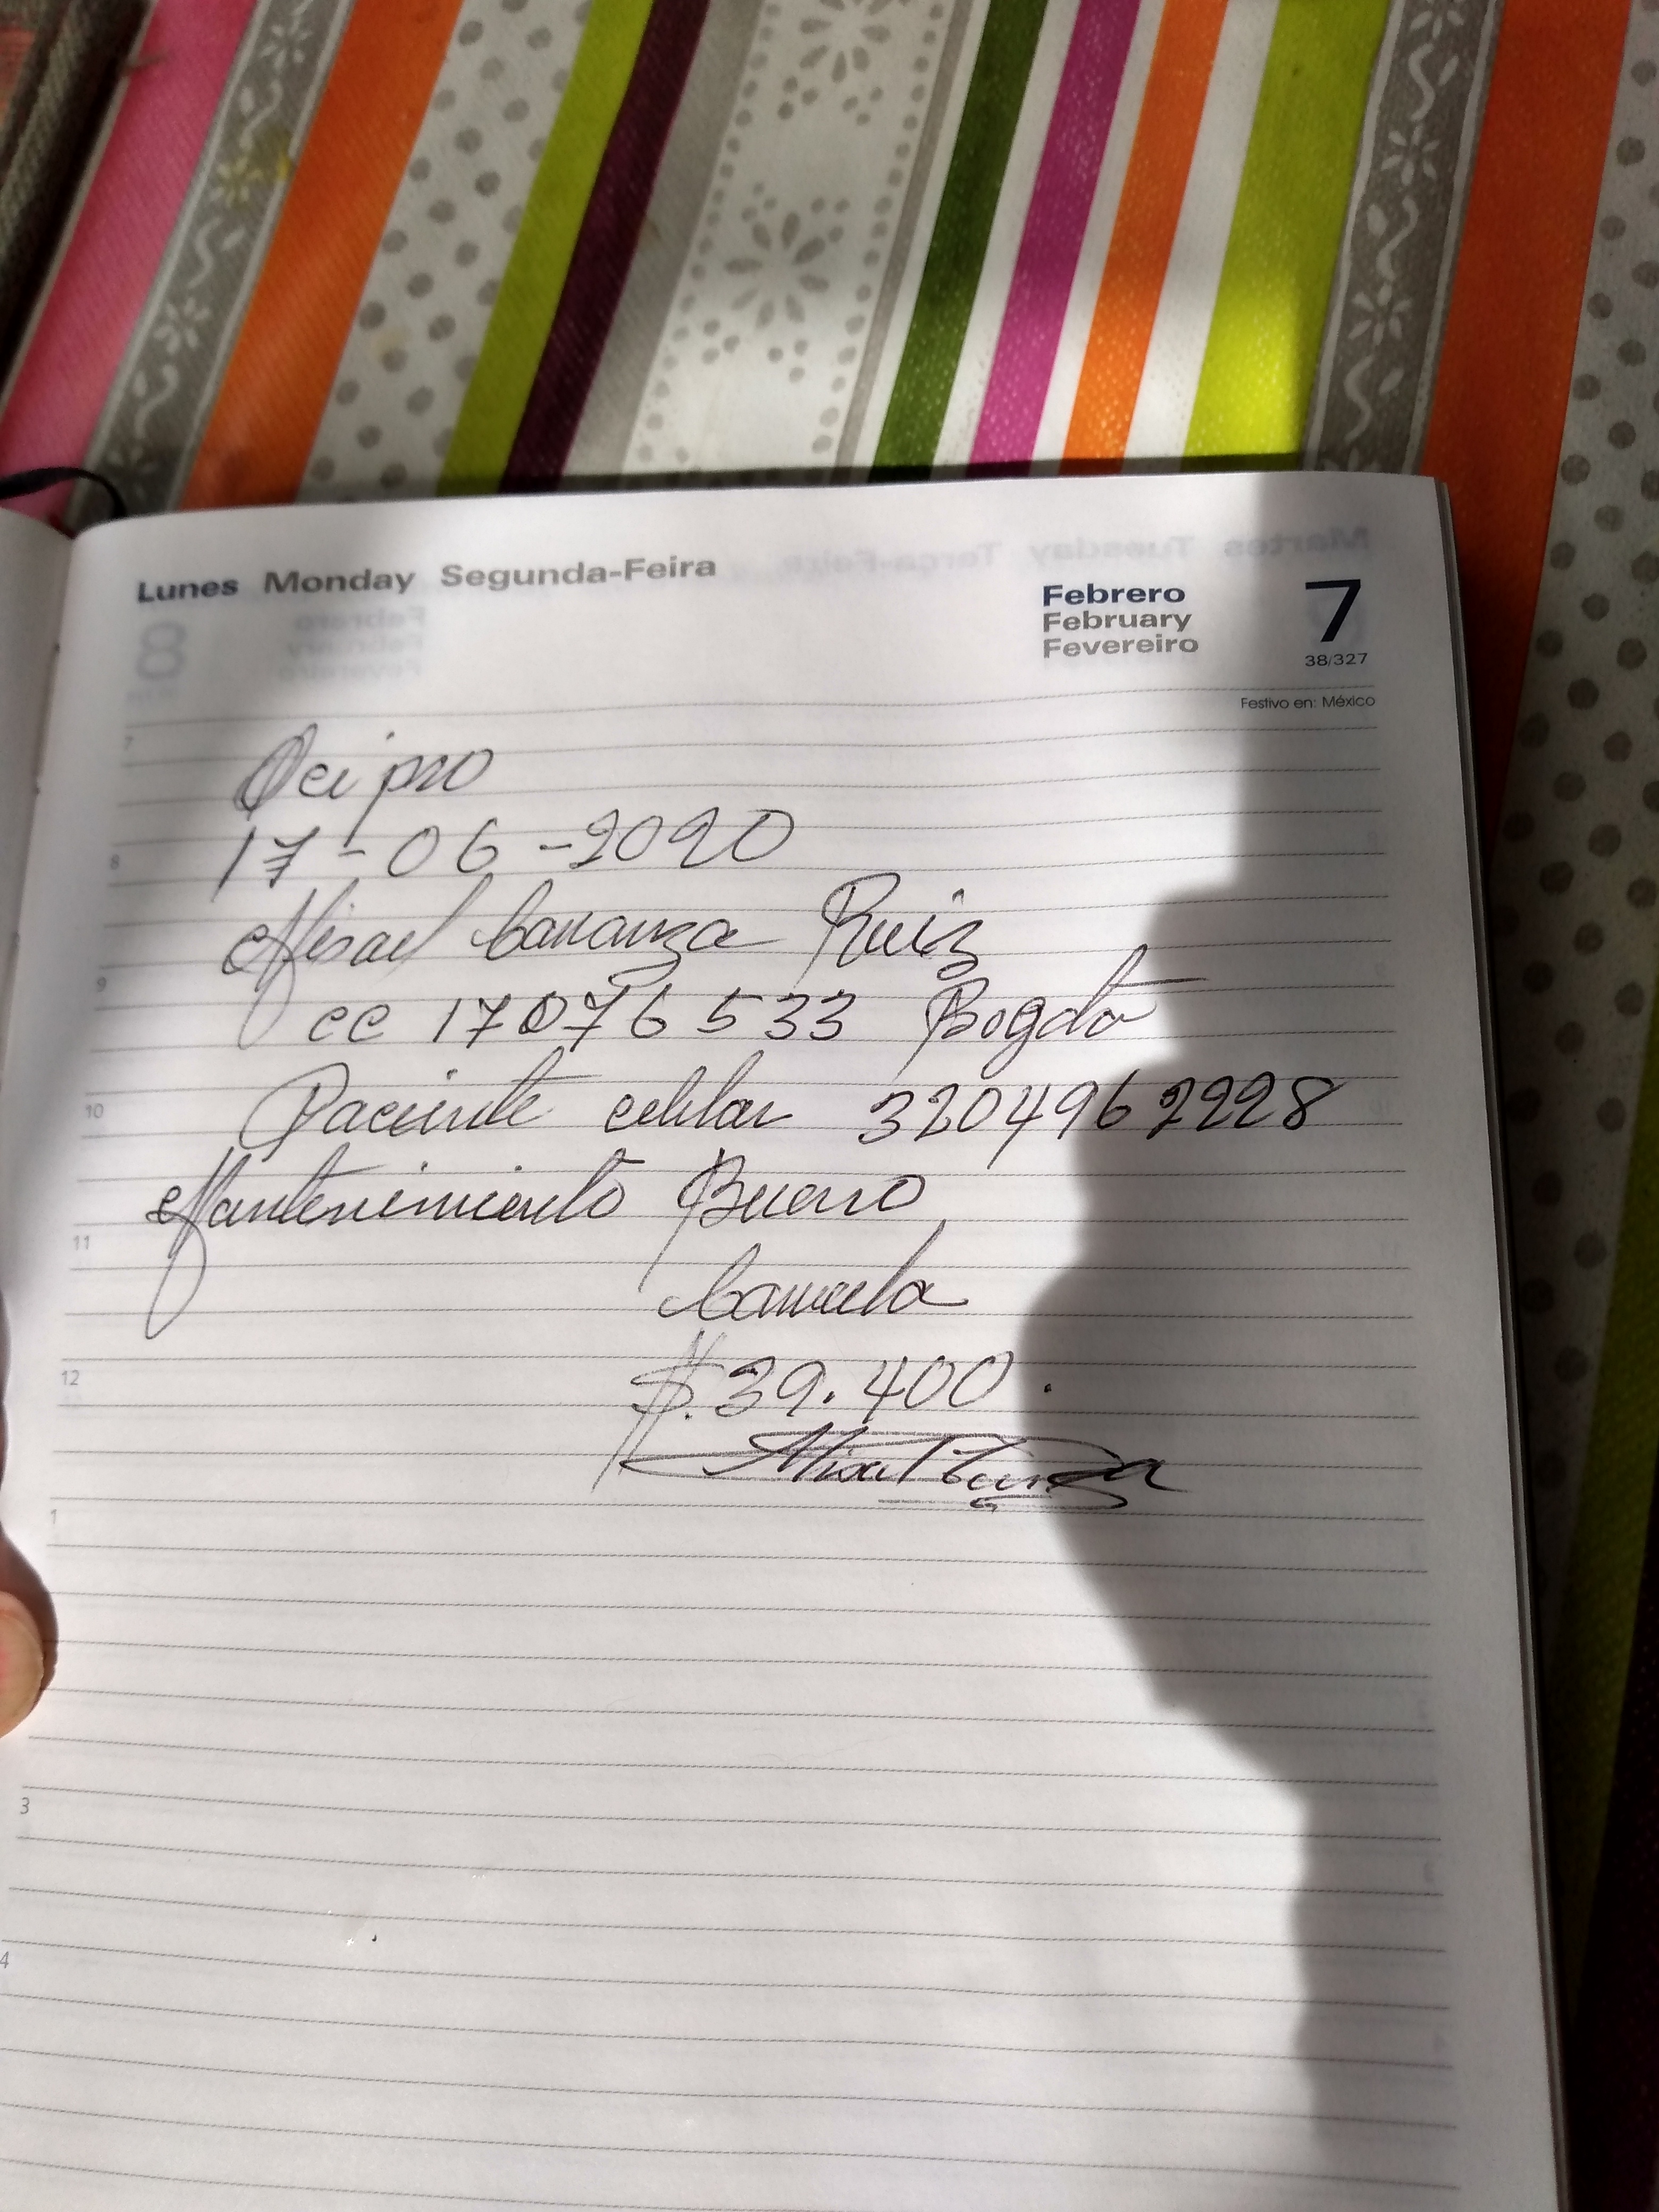 Lunes Monday Segunda-Feira
Febrero 7
February
Fevereiro
38/327
Festivo en: México
7
17-06-2020
8
Misael Carranza Ruiz
9
cc 17076533 Bogotá
Paciente celular 3204962228
10
Mantenimiento Bueno
11
$.39.400.
12
1
3
4